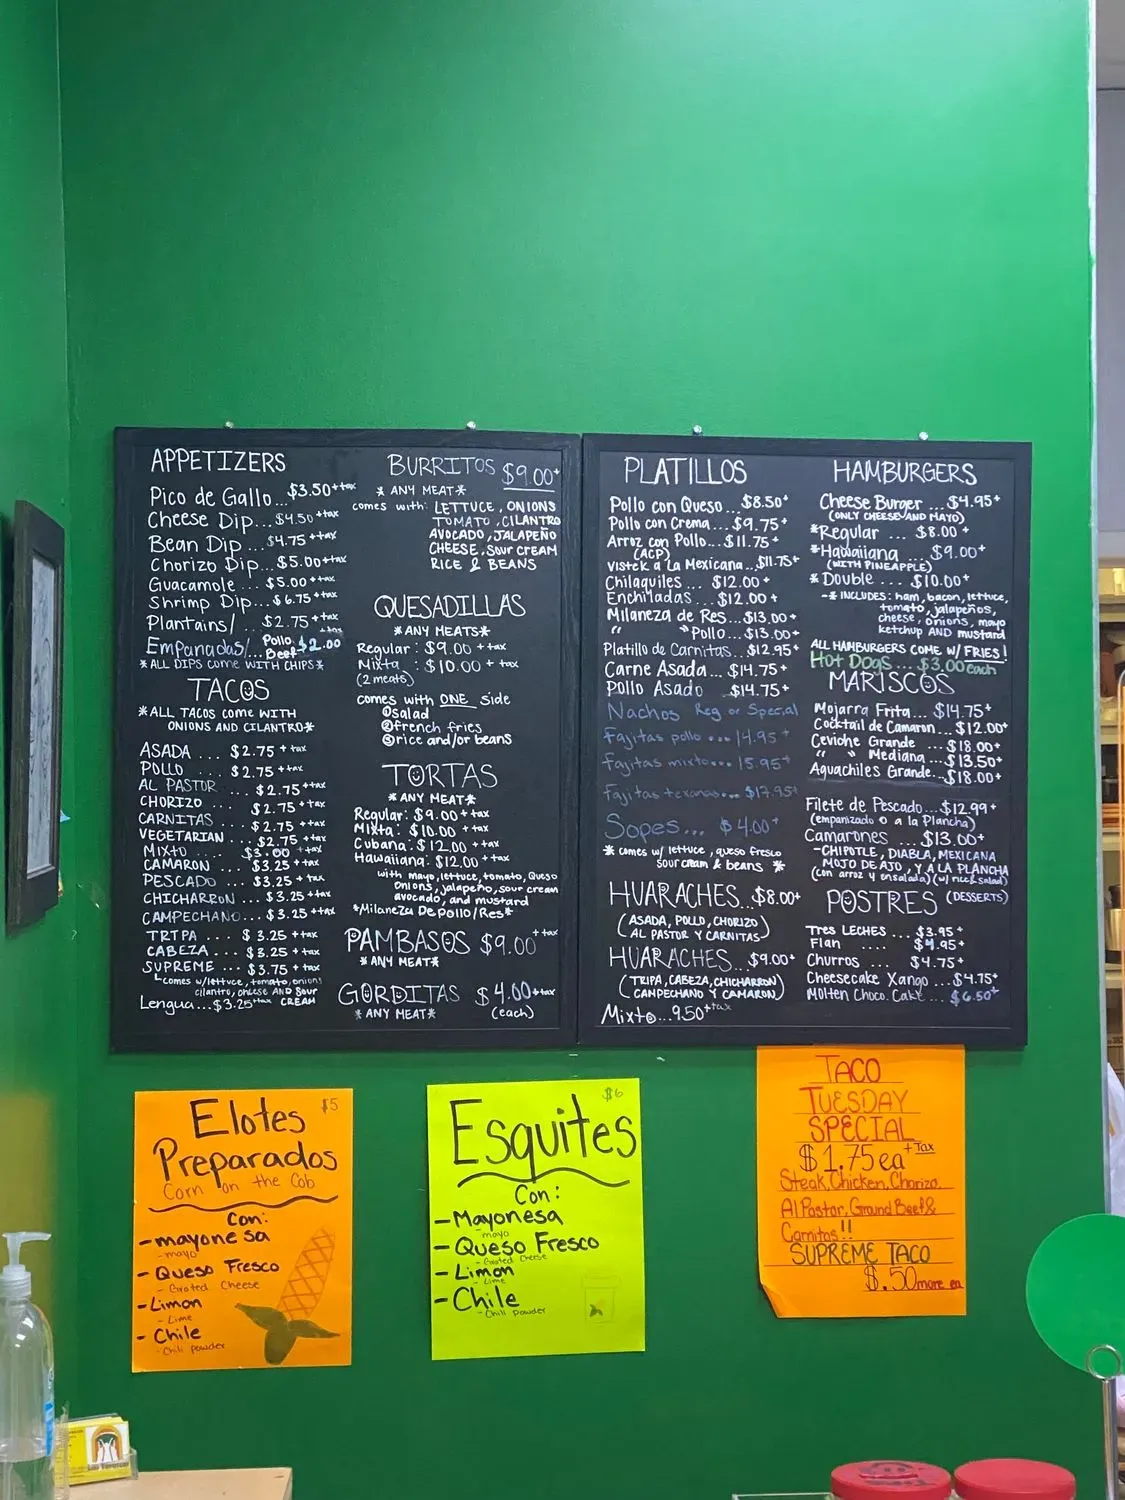 APPETIZERS
Pico de Gallo... $3.50++tax
Cheese Dip... $4.50++tax
Bean Dip... $4.75++tax
Chorizo Dip... $5.00++tax
Guacamole... $5.00++tax
Shrimp Dip... $6.75++tax
Plantains/... $2.75++tax
Empanadas/... Pollo
Beef $2.00+tax
*ALL DIPS COME WITH CHIPS*
TACOS
*ALL TACOS COME WITH
ONIONS AND CILANTRO*
ASADA ... $2.75++tax
POLLO ... $2.75++tax
AL PASTOR ... $2.75++tax
CHORIZO ... $2.75++tax
CARNITAS ... $2.75++tax
VEGETARIAN ... $2.75++tax
MIXTO ... $3.00++tax
CAMARON ... $3.25++tax
PESCADO ... $3.25+tax
CHICHARRON ... $3.25++tax
CAMPECHANO ... $3.25++tax
TRIPA ... $3.25++tax
CABEZA ... $3.25++tax
SUPREME ... $3.75++tax
COMES W/lettuce, tomato, onions
cilantro, cheese AND sour
CREAM
Lengua...$3.25+tax
BURRITOS $9.00+
*ANY MEAT*
comes with: LETTUCE, ONIONS
TOMATO, CILANTRO
AVOCADO, JALAPEÑO
CHEESE, SOUR CREAM
RICE & BEANS
QUESADILLAS
*ANY MEATS*
Regular: $9.00++tax
Mixta: $10.00++tax
(2 meats)
comes with ONE side
①salad
②french fries
③rice and/or beans
TORTAS
*ANY MEAT*
Regular: $9.00++tax
Mixta: $10.00++tax
Cubana: $12.00++tax
Hawaiiana: $12.00++tax
with mayo, lettuce, tomato, Queso
Onions, jalapeño, sour cream
avocado, and mustard
*Milaneza De pollo/Res*
PAMBASOS $9.00++tax
*ANY MEAT*
GORDITAS $4.00++tax
*ANY MEAT* (each)
PLATILLOS
Pollo con Queso...$8.50+
Pollo con Crema...$9.75+
Arroz con Pollo...$11.75+
(ACP)
Vistek a La Mexicana...$11.75+
Chilaquiles ... $12.00+
Enchiladas ... $12.00+
Milaneza de Res...$13.00+
" " Pollo ... $13.00+
Platillo de Carnitas...$12.95+
Carne Asada... $14.75+
Pollo Asado ..$14.75+
Nachos Reg or Special
Fajitas pollo ... 14.95+
Fajitas mixto... 15.95+
Fajitas texanas... $17.95+
Sopes... $4.00+
*comes w/ lettuce, queso fresco
sour cream & beans *
HUARACHES..$8.00+
(ASADA, POLLO, CHORIZO
AL PASTOR Y CARNITAS)
HUARACHES...$9.00+
(TRIPA, CABEZA, CHICHARRON
CAMPECHANO Y CAMARON)
Mixto...9.50++tax
HAMBURGERS
Cheese Burger ...$4.95+
(ONLY CHEESE AND MAYO)
*Regular ... $8.00+
*Hawaiiana ... $9.00+
(WITH PINEAPPLE)
*Double .... $10.00+
-*INCLUDES: ham, bacon, lettuce,
tomato, jalapeños,
cheese, onions, mayo
ketchup AND mustard
ALL HAMBURGERS COME W/ FRIES!
Hot Dogs ... $3.00 each
MARISCOS
Mojarra Frita... $14.75+
Cocktail de Camaron ...$12.00+
Ceviche Grande ...$18.00+
" " Mediana ...$13.50+
Aguachiles Grande...$18.00+
Filete de Pescado...$12.99+
(empanizado o a la Plancha)
Camarones ... $13.00+
-CHIPOTLE, DIABLA, MEXICANA
MOJO DE AJO, Y A LA PLANCHA
(con arroz y ensalada) (w/ rice & salad)
POSTRES (DESSERTS)
Tres LECHES ... $3.95+
Flan .... $4.95+
Churros ... $4.75+
Cheesecake Xango ...$4.75+
Molten Choco. Cake ... $6.50+
Elotes $5
Preparados
Corn on the Cob
Con:
- mayonesa
- mayo
- Queso Fresco
- Grated Cheese
- Limon
- Lime
- Chile
- Chili powder
$6
Esquites
Con:
- Mayonesa
mayo
- Queso Fresco
- Grated Cheese
- Limon
- Lime
- Chile
- Chili powder
TACO
TUESDAY
SPECIAL
$1.75ea+Tax
Steak, Chicken, Chorizo,
Al Pastor, Ground Beef &
Carnitas!!
SUPREME TACO
$.50 more ea